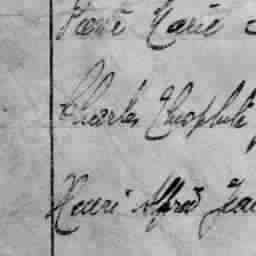 Marie
Charles Théophile
Henri Alfred Jean